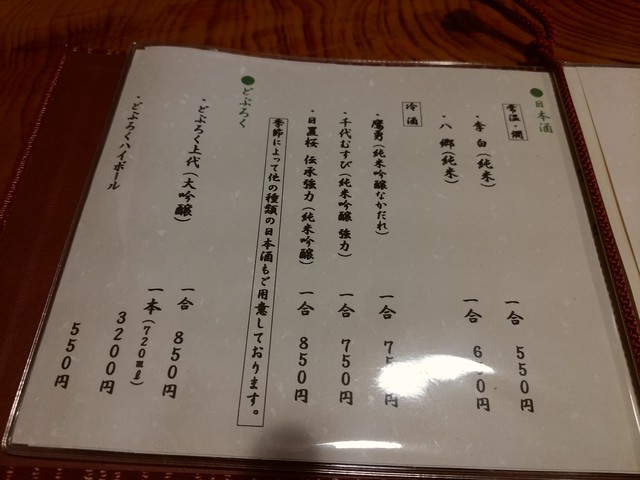 ●日本酒
常温・燗
・李白(純米) 一合 550円
・八郷(純米) 一合
冷酒
・鷹勇(純米吟醸なかだれ) 一合
・千代むすび(純米吟醸 強力) 一合 750円
・日置桜 伝承強力(純米吟醸) 一合 850円
季節によって他の種類の日本酒もご用意しております。
●どぶろく
・どぶろく上代(大吟醸) 一合 850円
一本(720㎖) 3200円
・どぶろくハイボール 550円